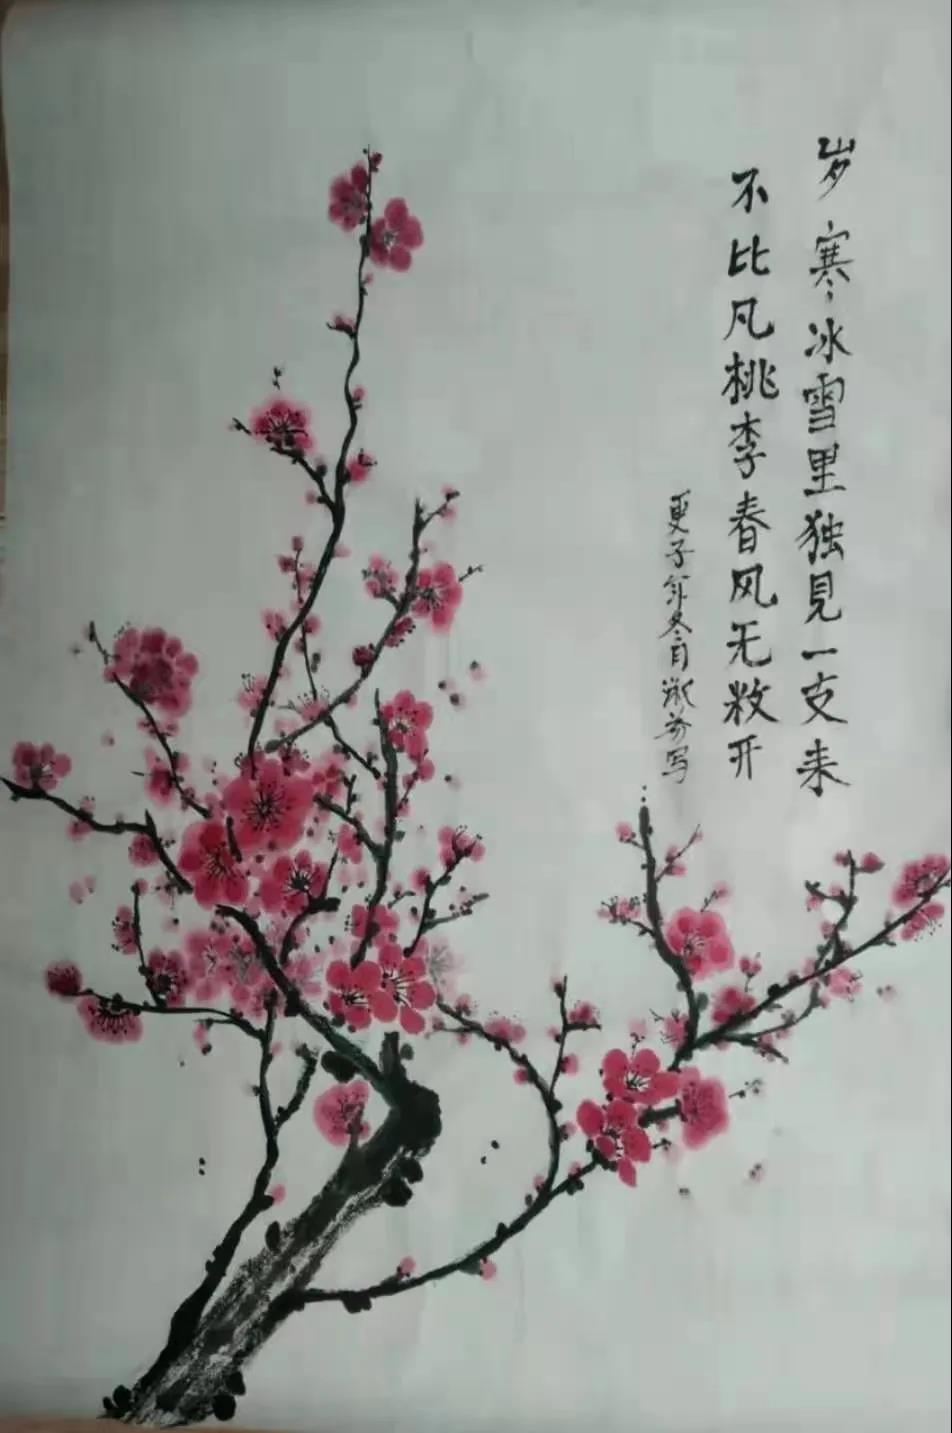 岁寒冰雪里独見一支来
不比凡桃李春风无数开
更子年冬月淑芳写